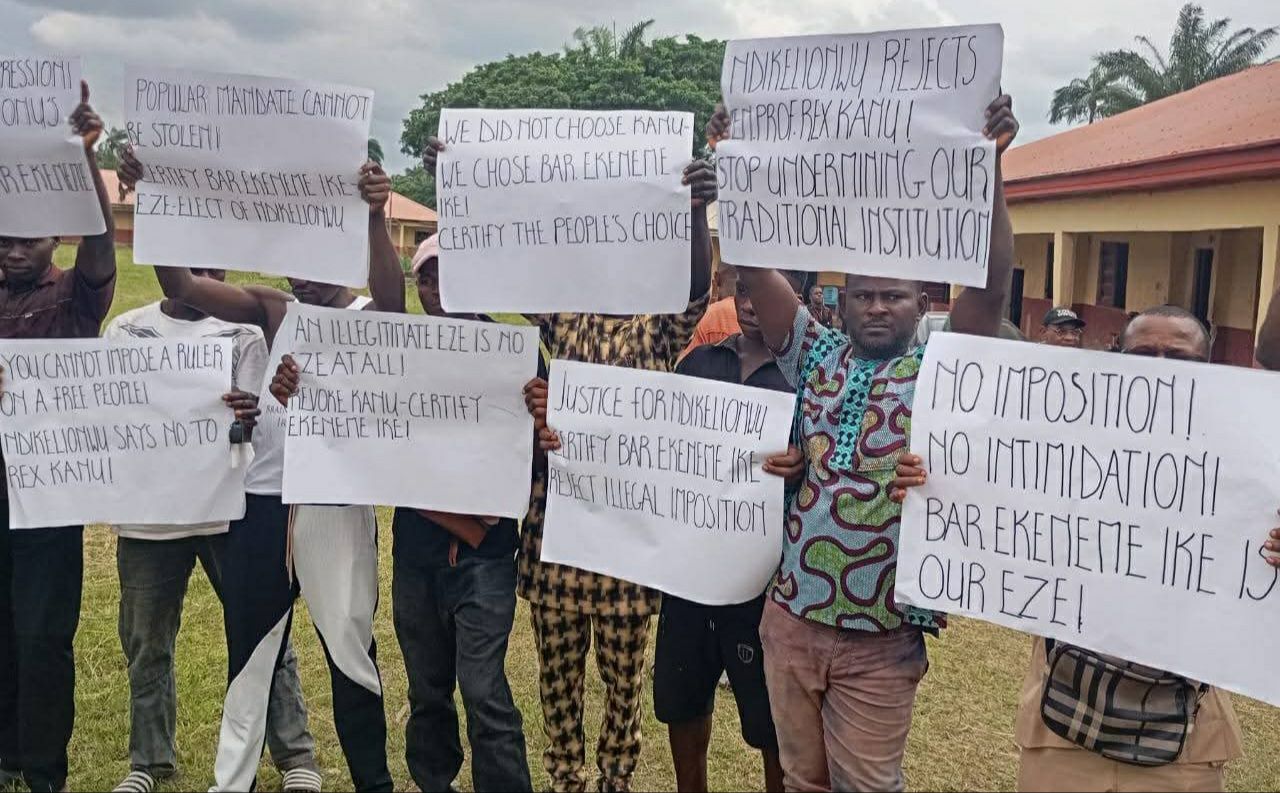 RESSION!
ONU'S
AR EKENEME
POPULAR MANDATE CANNOT
BE STOLEN!
CERTIFY BAR EKENEME IKE
EZE-ELECT OF NDIKELIONWU
WE DID NOT CHOOSE KANU-
WE CHOSE BAR. EKENEME
IKE!
CERTIFY THE PEOPLE'S CHOICE
NDIKELIONWU REJECTS
EN PROF. REX KANU!
STOP UNDERMINING OUR
TRADITIONAL INSTITUTION
YOU CANNOT IMPOSE A RULER
ON A FREE PEOPLE!
NDIKELIONWU SAYS NO TO
REX KANU!
AN ILLEGITIMATE EZE IS NO
EZE AT ALL!
REVOKE KANU-CERTIFY
EKENEME IKE!
JUSTICE FOR NDIKELIONWU
CERTIFY BAR. EKENEME IKE
REJECT ILLEGAL IMPOSITION
NO IMPOSITION!
NO INTIMIDATION!
BAR EKENEME IKE IS
OUR EZE!